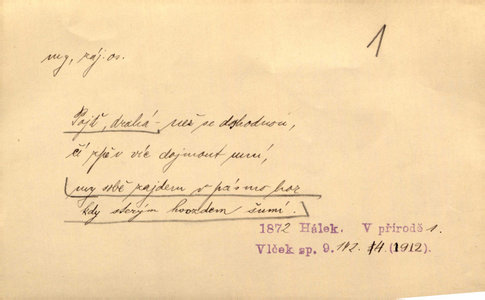 my, záj. os.
1
Pojď, drahá – než se dohodnou,
čí zpěv víc dojmout umí,
my sobě zajdem v pásmo hor
kdy sterým hvozdem šumí.
1872 Hálek. V přírodě 1.
Vlček sp. 9. 142. (1912).